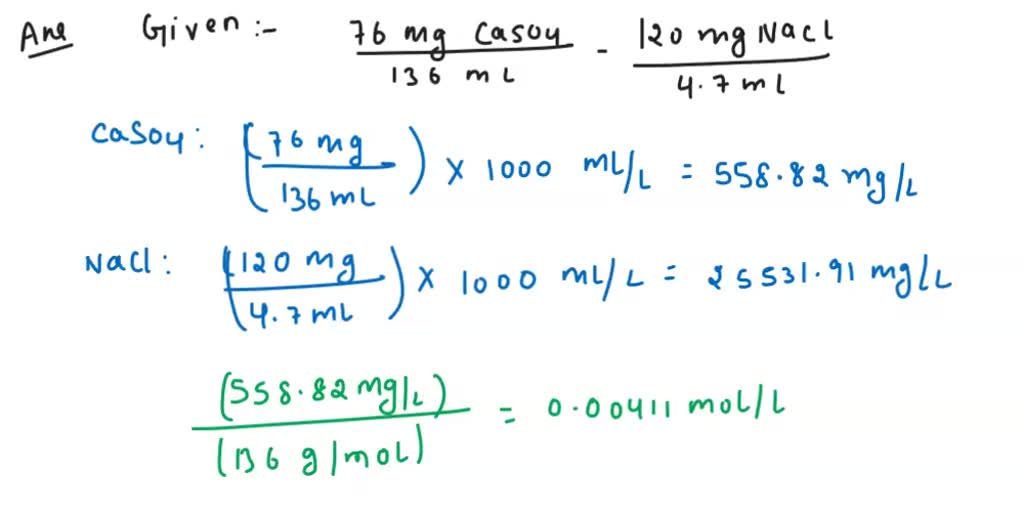 Ans Given :- 76 mg CaSO4 / 136 mL - 120 mg NaCl / 4.7 ml
CaSO4 : (76 mg / 136 mL) × 1000 mL/L = 558.82 mg/L
NaCl : (120 mg / 4.7 mL) × 1000 mL/L = 25531.91 mg/L
(558.82 mg/L) / (136 g/mol) = 0.00411 mol/L